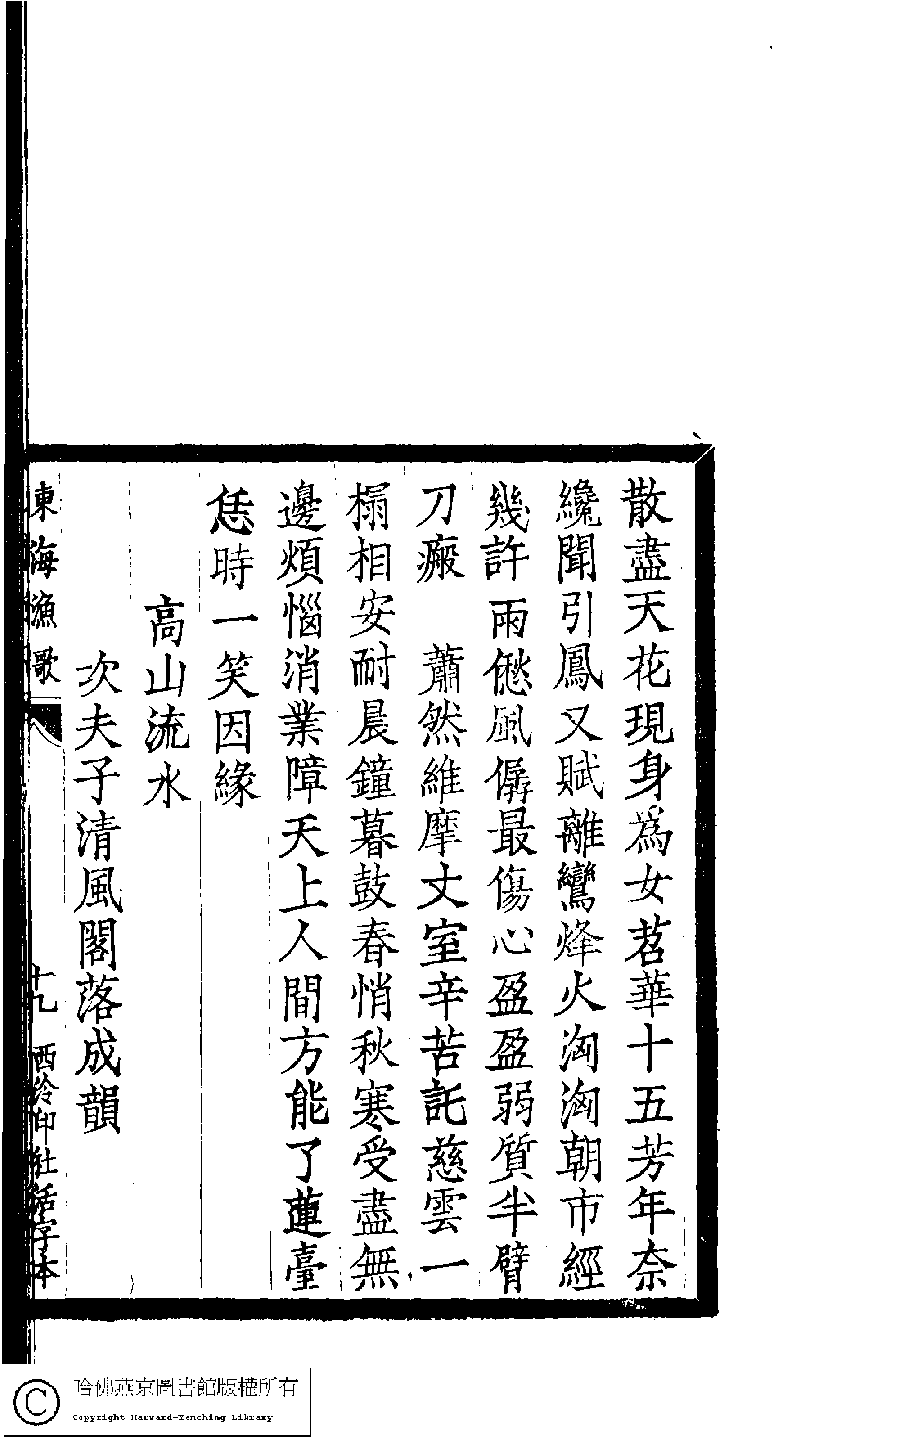 散盡天花現身為女苕華十五芳年奈
纔聞引鳳又賦離鸞烽火洶洶朝市經
幾許雨僽風僝最傷心盈盈弱質半臂
刀瘢　蕭然維摩丈室辛苦託慈雲一
榻相安耐晨鐘暮鼓春悄秋寒受盡無
邊煩惱消業障天上人間方能了蓮臺
恁時一笑因緣
高山流水
次夫子清風閣落成韻
東海漁歌
十九
西泠印社活字本
哈佛燕京圖書館版權所有
Copyright Harvard-Yenching Library